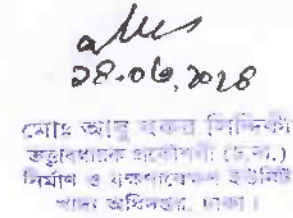 ২৪.০৬.২০২৪
মোঃ আবু বকর সিদ্দিকী
তত্ত্বাবধায়ক প্রকৌশলী (চ.দা.)
নির্মাণ ও রক্ষণাবেক্ষণ ইউনিট
খাদ্য অধিদপ্তর, ঢাকা।